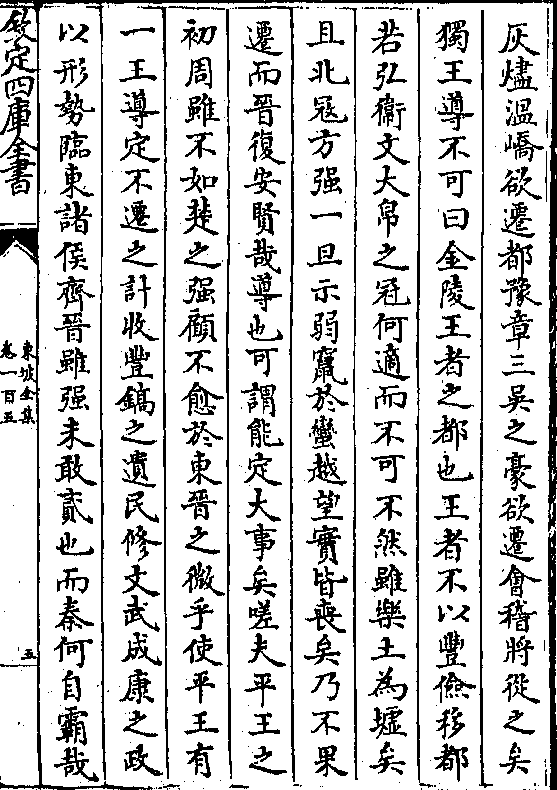 灰燼溫嶠欲遷都豫章三吳之豪欲遷會稽將從之矣
獨王導不可曰金陵王者之都也王者不以豐儉移都
若弘衞文大帛之冠何適而不可不然雖樂土為墟矣
且北寇方强一旦示弱竄於蠻越望實皆喪矣乃不果
遷而晉復安賢哉導也可謂能定大事矣嗟夫平王之
初周雖不如楚之强顧不愈於東晉之微乎使平王有
一王導定不遷之計收豐鎬之遺民修文武成康之政
以形勢臨東諸侯齊晉雖强未敢貳也而秦何自霸哉
欽定四庫全書
東坡全集
卷一百五
五